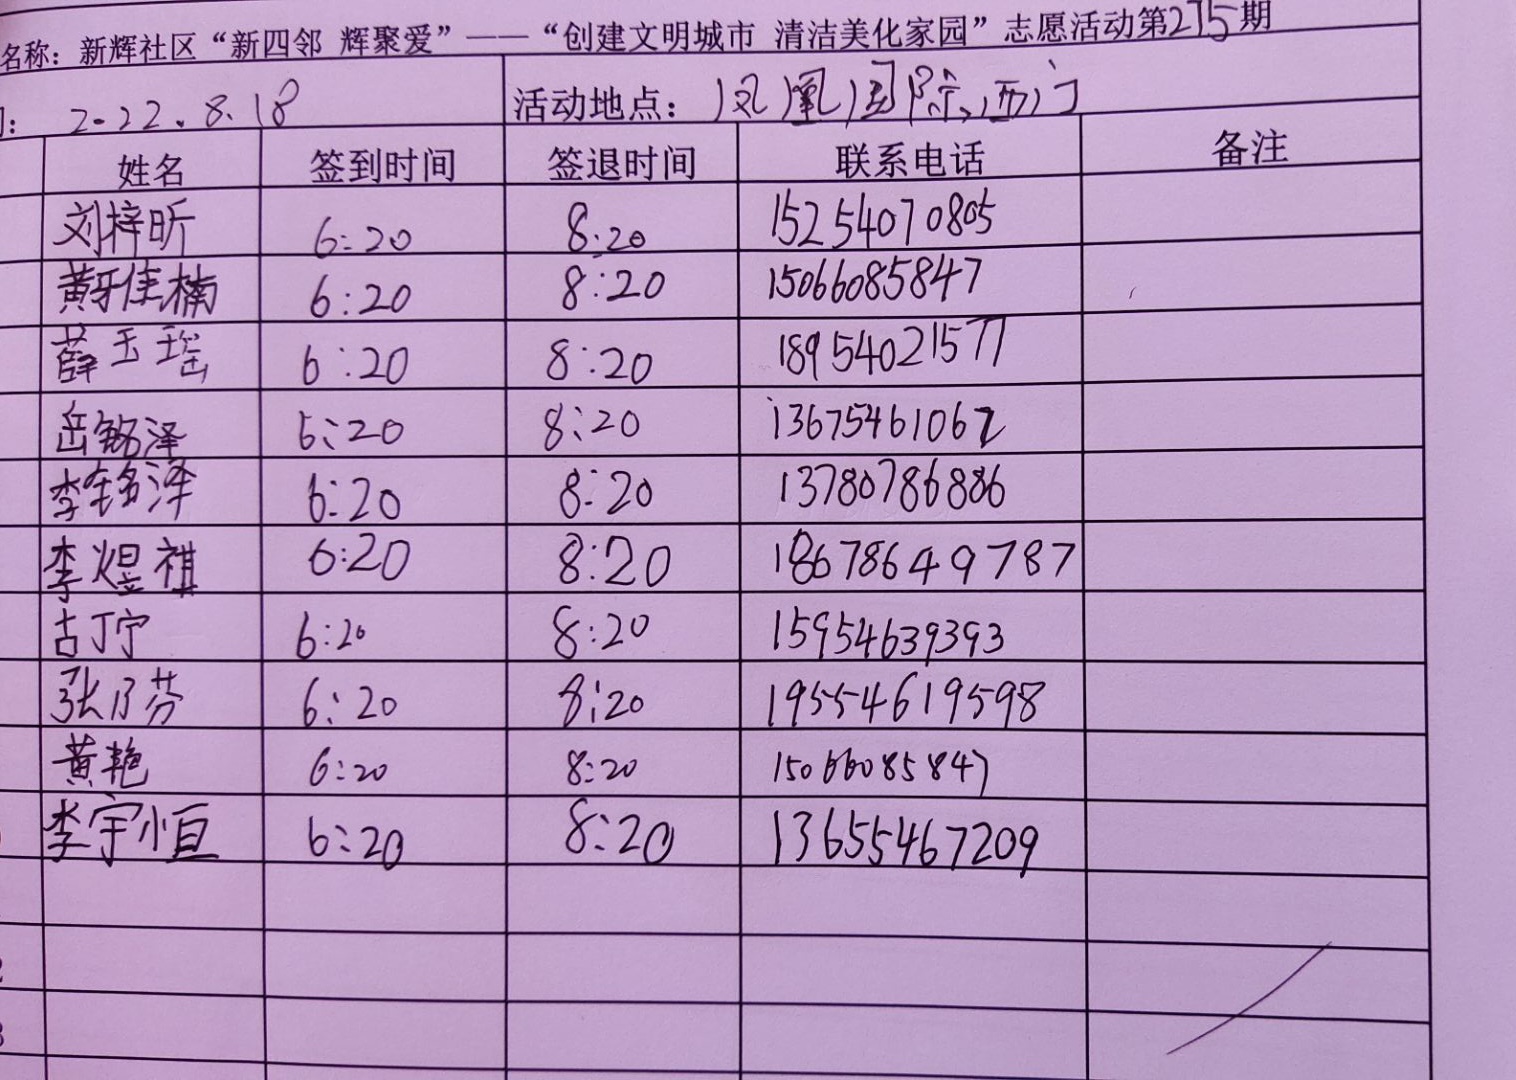 名称：新辉社区“新四邻 辉聚爱”——“创建文明城市 清洁美化家园”志愿活动第275期
2022.8.18 活动地点：凤凰国际西门
姓名 签到时间 签退时间 联系电话 备注
刘梓昕 6:20 8:20 15254070805
黄佳楠 6:20 8:20 15066085847
薛玉瑶 6:20 8:20 18954021577
岳铭泽 6:20 8:20 13675461067
李铭泽 6:20 8:20 13780786886
李煜祺 6:20 8:20 18678649787
古丁宁 6:20 8:20 15954639393
张乃芬 6:20 8:20 19554619598
黄艳 6:20 8:20 15066085847
李宇恒 6:20 8:20 13655467209